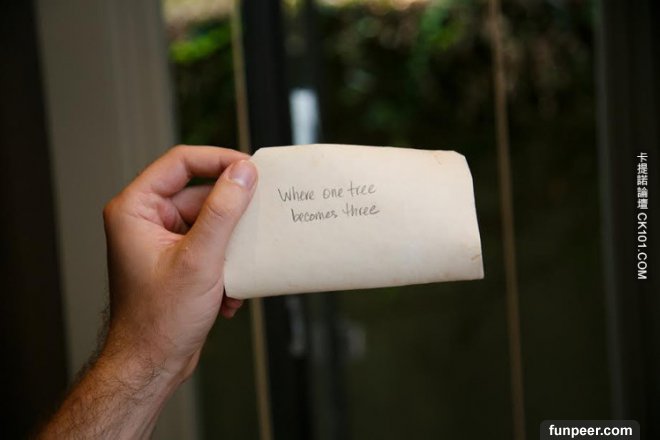 Where one tree
becomes three
卡提諾論壇 CK101.COM
funpeer.com